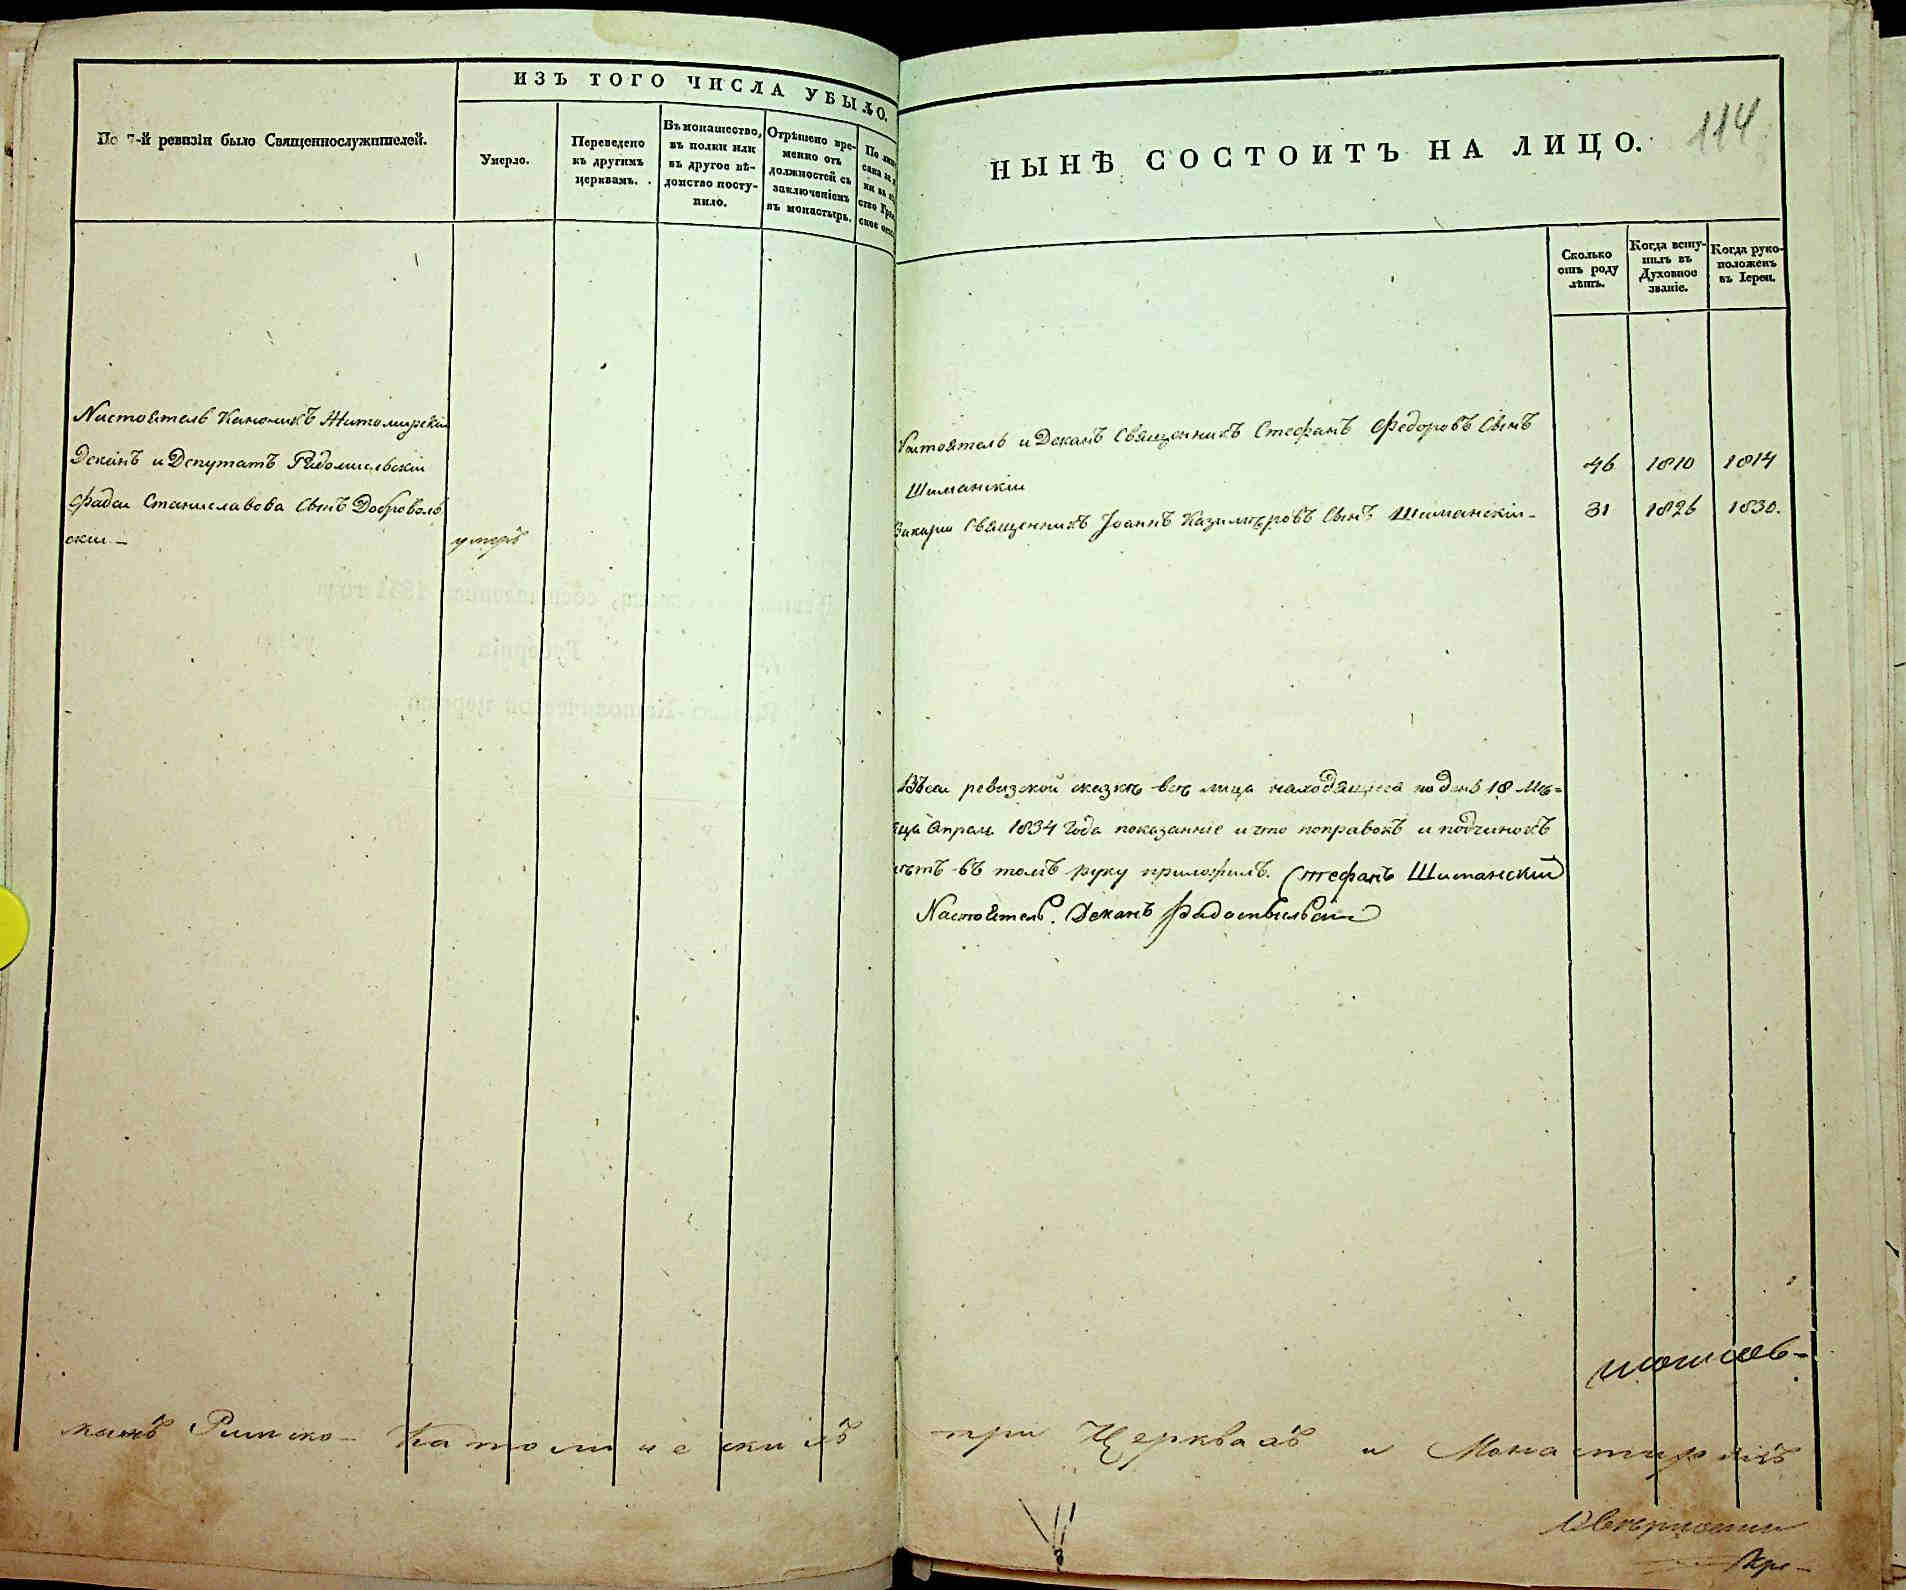 По 7-й ревизіи было Священнослужителей.
ИЗЪ ТОГО ЧИСЛА УБЫЛО.
Умерло.
Переведено
къ другимъ
церквамъ.
Въ монашество,
въ полки или
въ другое вѣ-
домство посту-
пило.
Отрѣшено вре-
менно отъ
должностей съ
заключеніемъ
въ монастырь.
НЫНѢ СОСТОИТЪ НА ЛИЦО.
114
Сколько
отъ роду
лѣтъ.
Когда всту-
пилъ въ
Духовное
званіе.
Когда руко-
положенъ
въ Іереи.
Настоятель Каноникъ Житомирскій
Деканъ и Депутатъ Радомисльскій
Фадей Станиславова Сынъ Доброволь
скій
умеръ
Настоятель и Деканъ Священникъ Стефанъ Федоровъ Сынъ
Шиманскій
46 1810 1814
Викарій Священникъ Іоаннъ Казимеровъ Сынъ Шиманскій
31 1826 1830.
Въ сей ревизской сказкѣ всѣ лица находящіеся по день 18 Мѣ=
сяца Апреля 1834 Года показанніе и что поправокъ и подчинокъ
нетъ въ томъ руку приложилъ. Стефанъ Шиманскій
Настоятель. Деканъ
Римско-Католическихъ при Церквахъ и Монастиряхъ